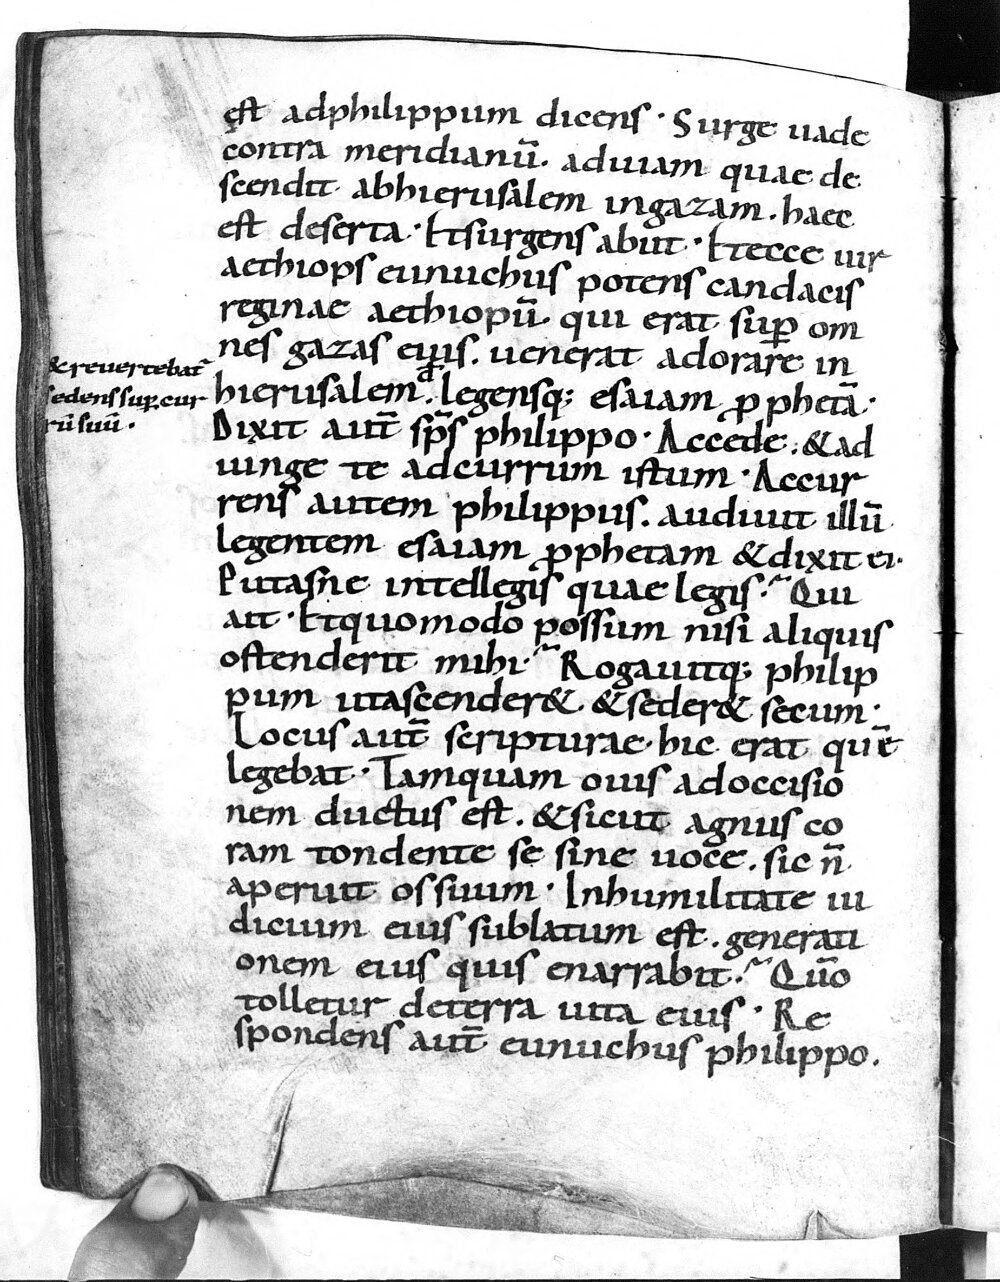 est adphilippum dicens · Surge uade
contra meridianū. aduiam quae de
scendit abhierusalem ingazam. haec
est deserta · Etsurgens abiit · Etecce uir
aethiops eunuchus potens candacis
reginae aethiopū. qui erat sup̄ om
nes gazas eius. uenerat adorare in
hierusalem ᵈ. legensq; esaiam ꝓphetā ·
&reuertebat᷑
sedens sup. cur
rū suū ·
Dixit aut̄ sp̄s philippo · Accede. &ad
iunge te adcurrum istum · Accur
rens autem philippus. audiuit illū
legentem esaiam ꝓphetam &dixit ei ·
Putasne intellegis quae legis ·~ Qui
ait · Etquomodo possum nisi aliquis
ostenderit mihi ·~ Rogauitq; philip
pum utascender& &seder& secum ·
Locus aut̄ scripturae · hic erat quē
legebat · Tamquam ouis adoccisio
nem ductus est. &sicut agnus co
ram tondente se sine uoce. sic n̄
aperuit ossuum · Inhumilitate iu
dicium eius sublatum est. generati
onem eius quis enarrabit ·~ Quō
tolletur deterra uita eius · Re
spondens aut̄ eunuchus philippo.